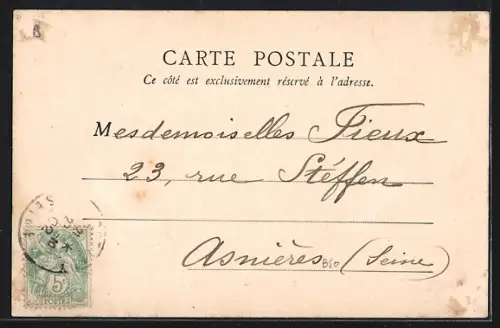 8
CARTE POSTALE
Ce côté est exclusivement réservé à l'adresse.
Mesdemoiselles Fieux
23, rue Stéffen
Asnières (Seine)
5